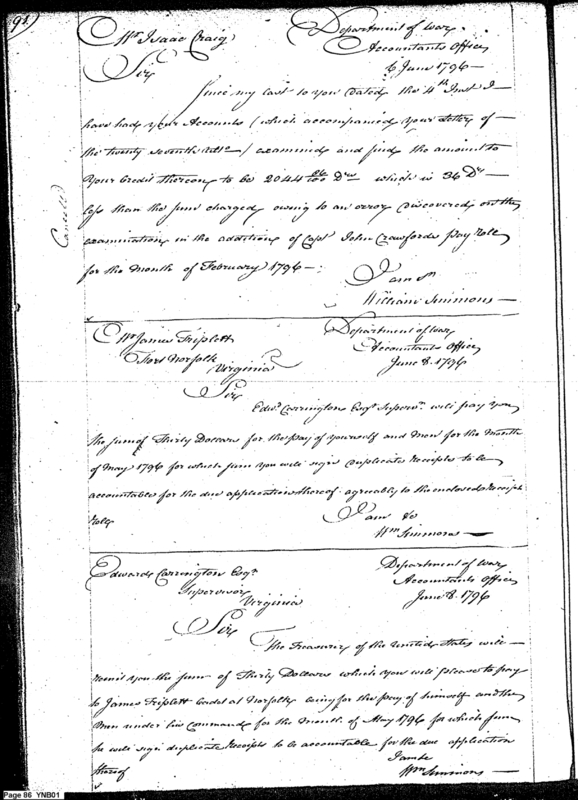 98.
Mr Isaac Craig
Department of War
Accountants Office
6 June 1796
Sir
Since my last to you dated the 4th Inst I
have had your Accounts (which accompanied your letter of
the twenty seventh Ulto) examined and find the amount to
Your Credit thereon to be 2044 Drs which is 36 Drs
less than the sum charged owing to an error discovered on the
examination in the additions of Capt John Crawfords pay Roll
for the Month of February 1796
I am Sr
William Simmons
Cancelled
Mr James Triplett
Fort Norfolk
Virginia
Department of War
Accountants Office
June 8. 1796
Sir
Edwd Carrington Esqr Supervr will pay you
the sum of Thirty Dollars for the pay of yourself and Men for the Month
of May 1796 for which sum you will sign duplicate receipts to be
accountable for the due application thereof agreeably to the enclosed receipt
Rolls
I am &c
Wm Simmons
Edward Carrington Esqr
Supervisor
Virginia
Department of War
Accountants Office
June 8. 1796
Sir
The Treasurer of the United States will
remit you the sum of Thirty Dollars which you will please to pay
to James Triplett Cadet at Norfolk being for the pay of himself and the
Men under his command for the Month of May 1796 for which sum
he will sign duplicate receipts to be accountable for the due application
thereof
I am &c
Wm Simmons
Page 86 YNB01